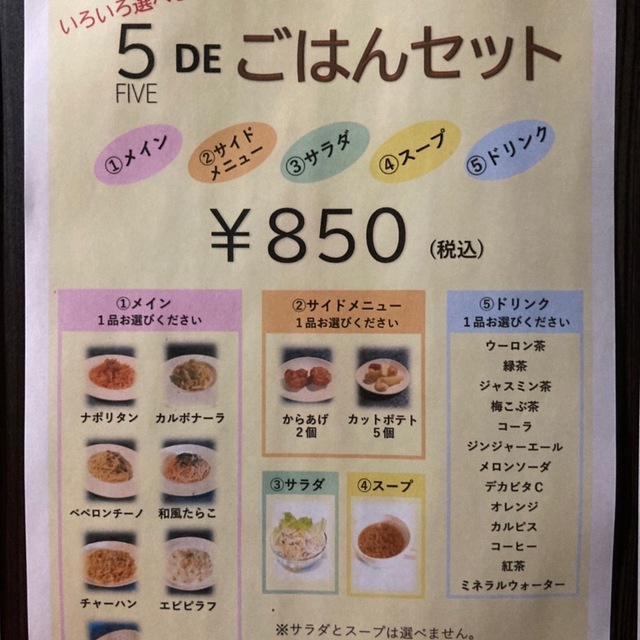 いろいろ選べ
5 DE ごはんセット
FIVE
①メイン
②サイド
メニュー
③サラダ
④スープ
⑤ドリンク
¥850 (税込)
①メイン
1品お選びください
ナポリタン カルボナーラ
ペペロンチーノ 和風たらこ
チャーハン エビピラフ
②サイドメニュー
1品お選びください
からあげ カットポテト
2個 5個
③サラダ ④スープ
※サラダとスープは選べません。
⑤ドリンク
1品お選びください
ウーロン茶
緑茶
ジャスミン茶
梅こぶ茶
コーラ
ジンジャーエール
メロンソーダ
デカビタC
オレンジ
カルピス
コーヒー
紅茶
ミネラルウォーター